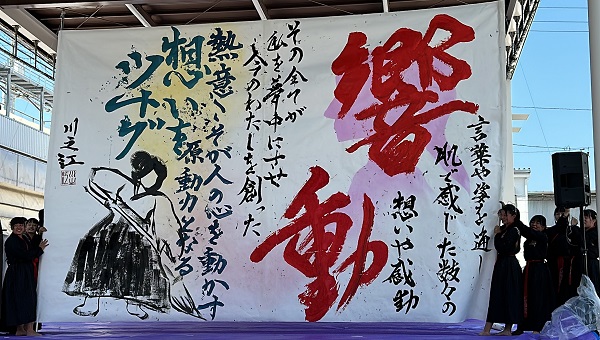 響動
言葉や学を通し
肌で感じた数々の
想いや感動
その全てが
私を夢中にさせ
今のわたしを創った
熱意こそが人の心を動かす
源動力となる
想いを
ツナグ
川之江